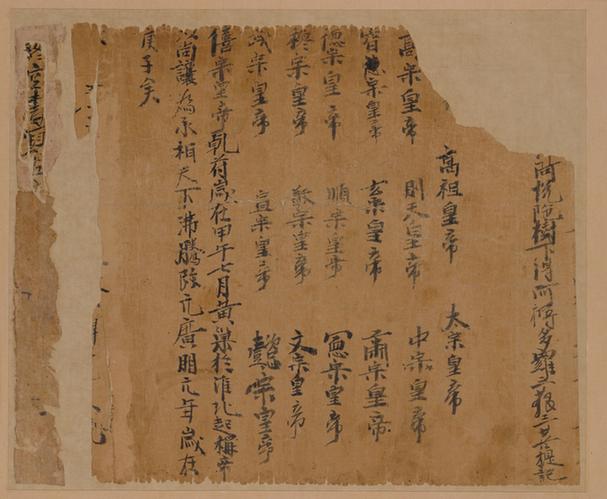 樹下得阿耨多羅三藐三菩提記
高祖皇帝 太宗皇帝
高宗皇帝 則天皇帝 中宗皇帝
睿宗皇帝 玄宗皇帝 肅宗皇帝
德宗皇帝 順宗皇帝 憲宗皇帝
穆宗皇帝 敬宗皇帝 文宗皇帝
武宗皇帝 宣宗皇帝 懿宗皇帝
僖宗皇帝乹符歲在甲午七月黃巢於淮北起稱帝
以尚讓為丞相天下沸騰改元廣明元年歲在
庚子矣